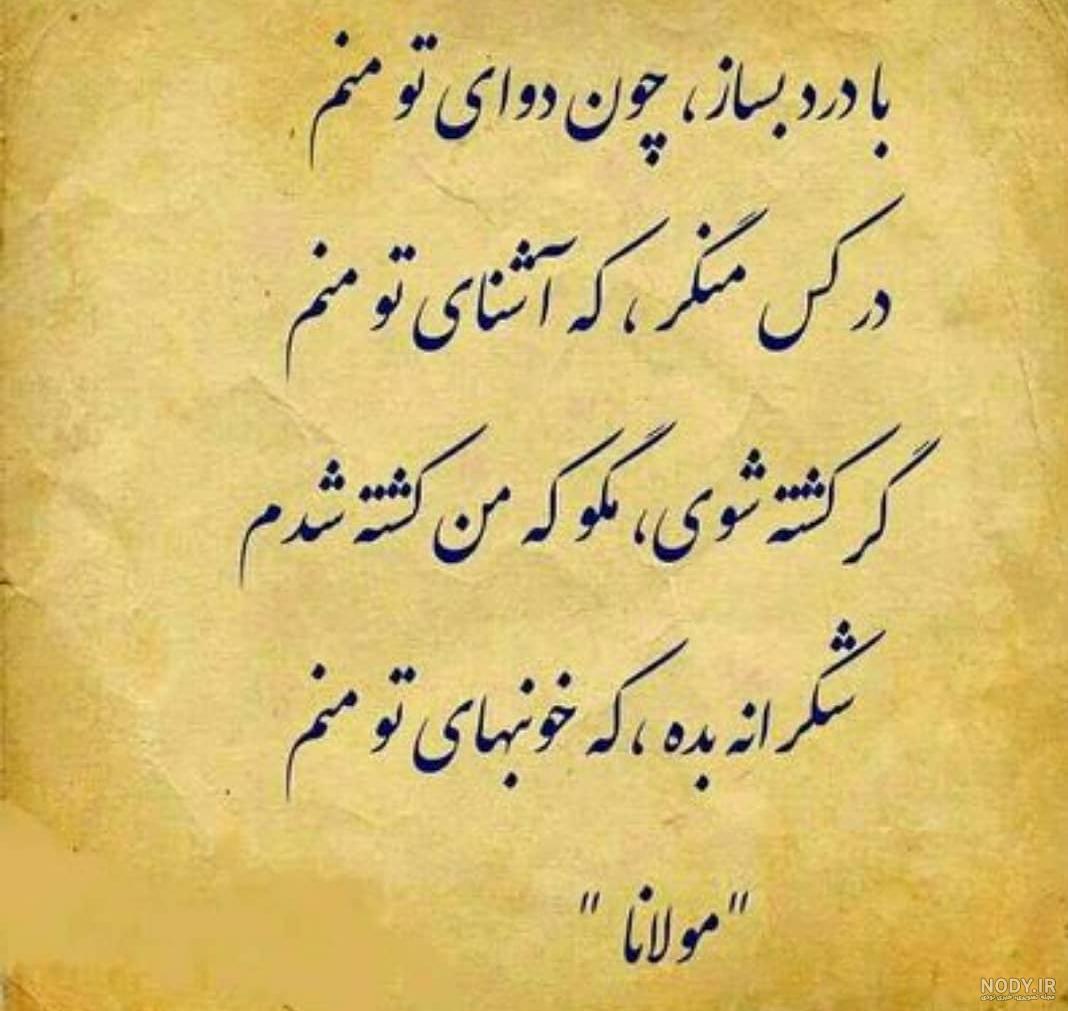 با درد بساز، چون دوای تو منم
در کس منگر، که آشنای تو منم
گر کشته شوی، مگو که من کشته شدم
شکرانه بده، که خونبهای تو منم
"مولانا"
NODY.IR
مجله تصویری، خبری نودی